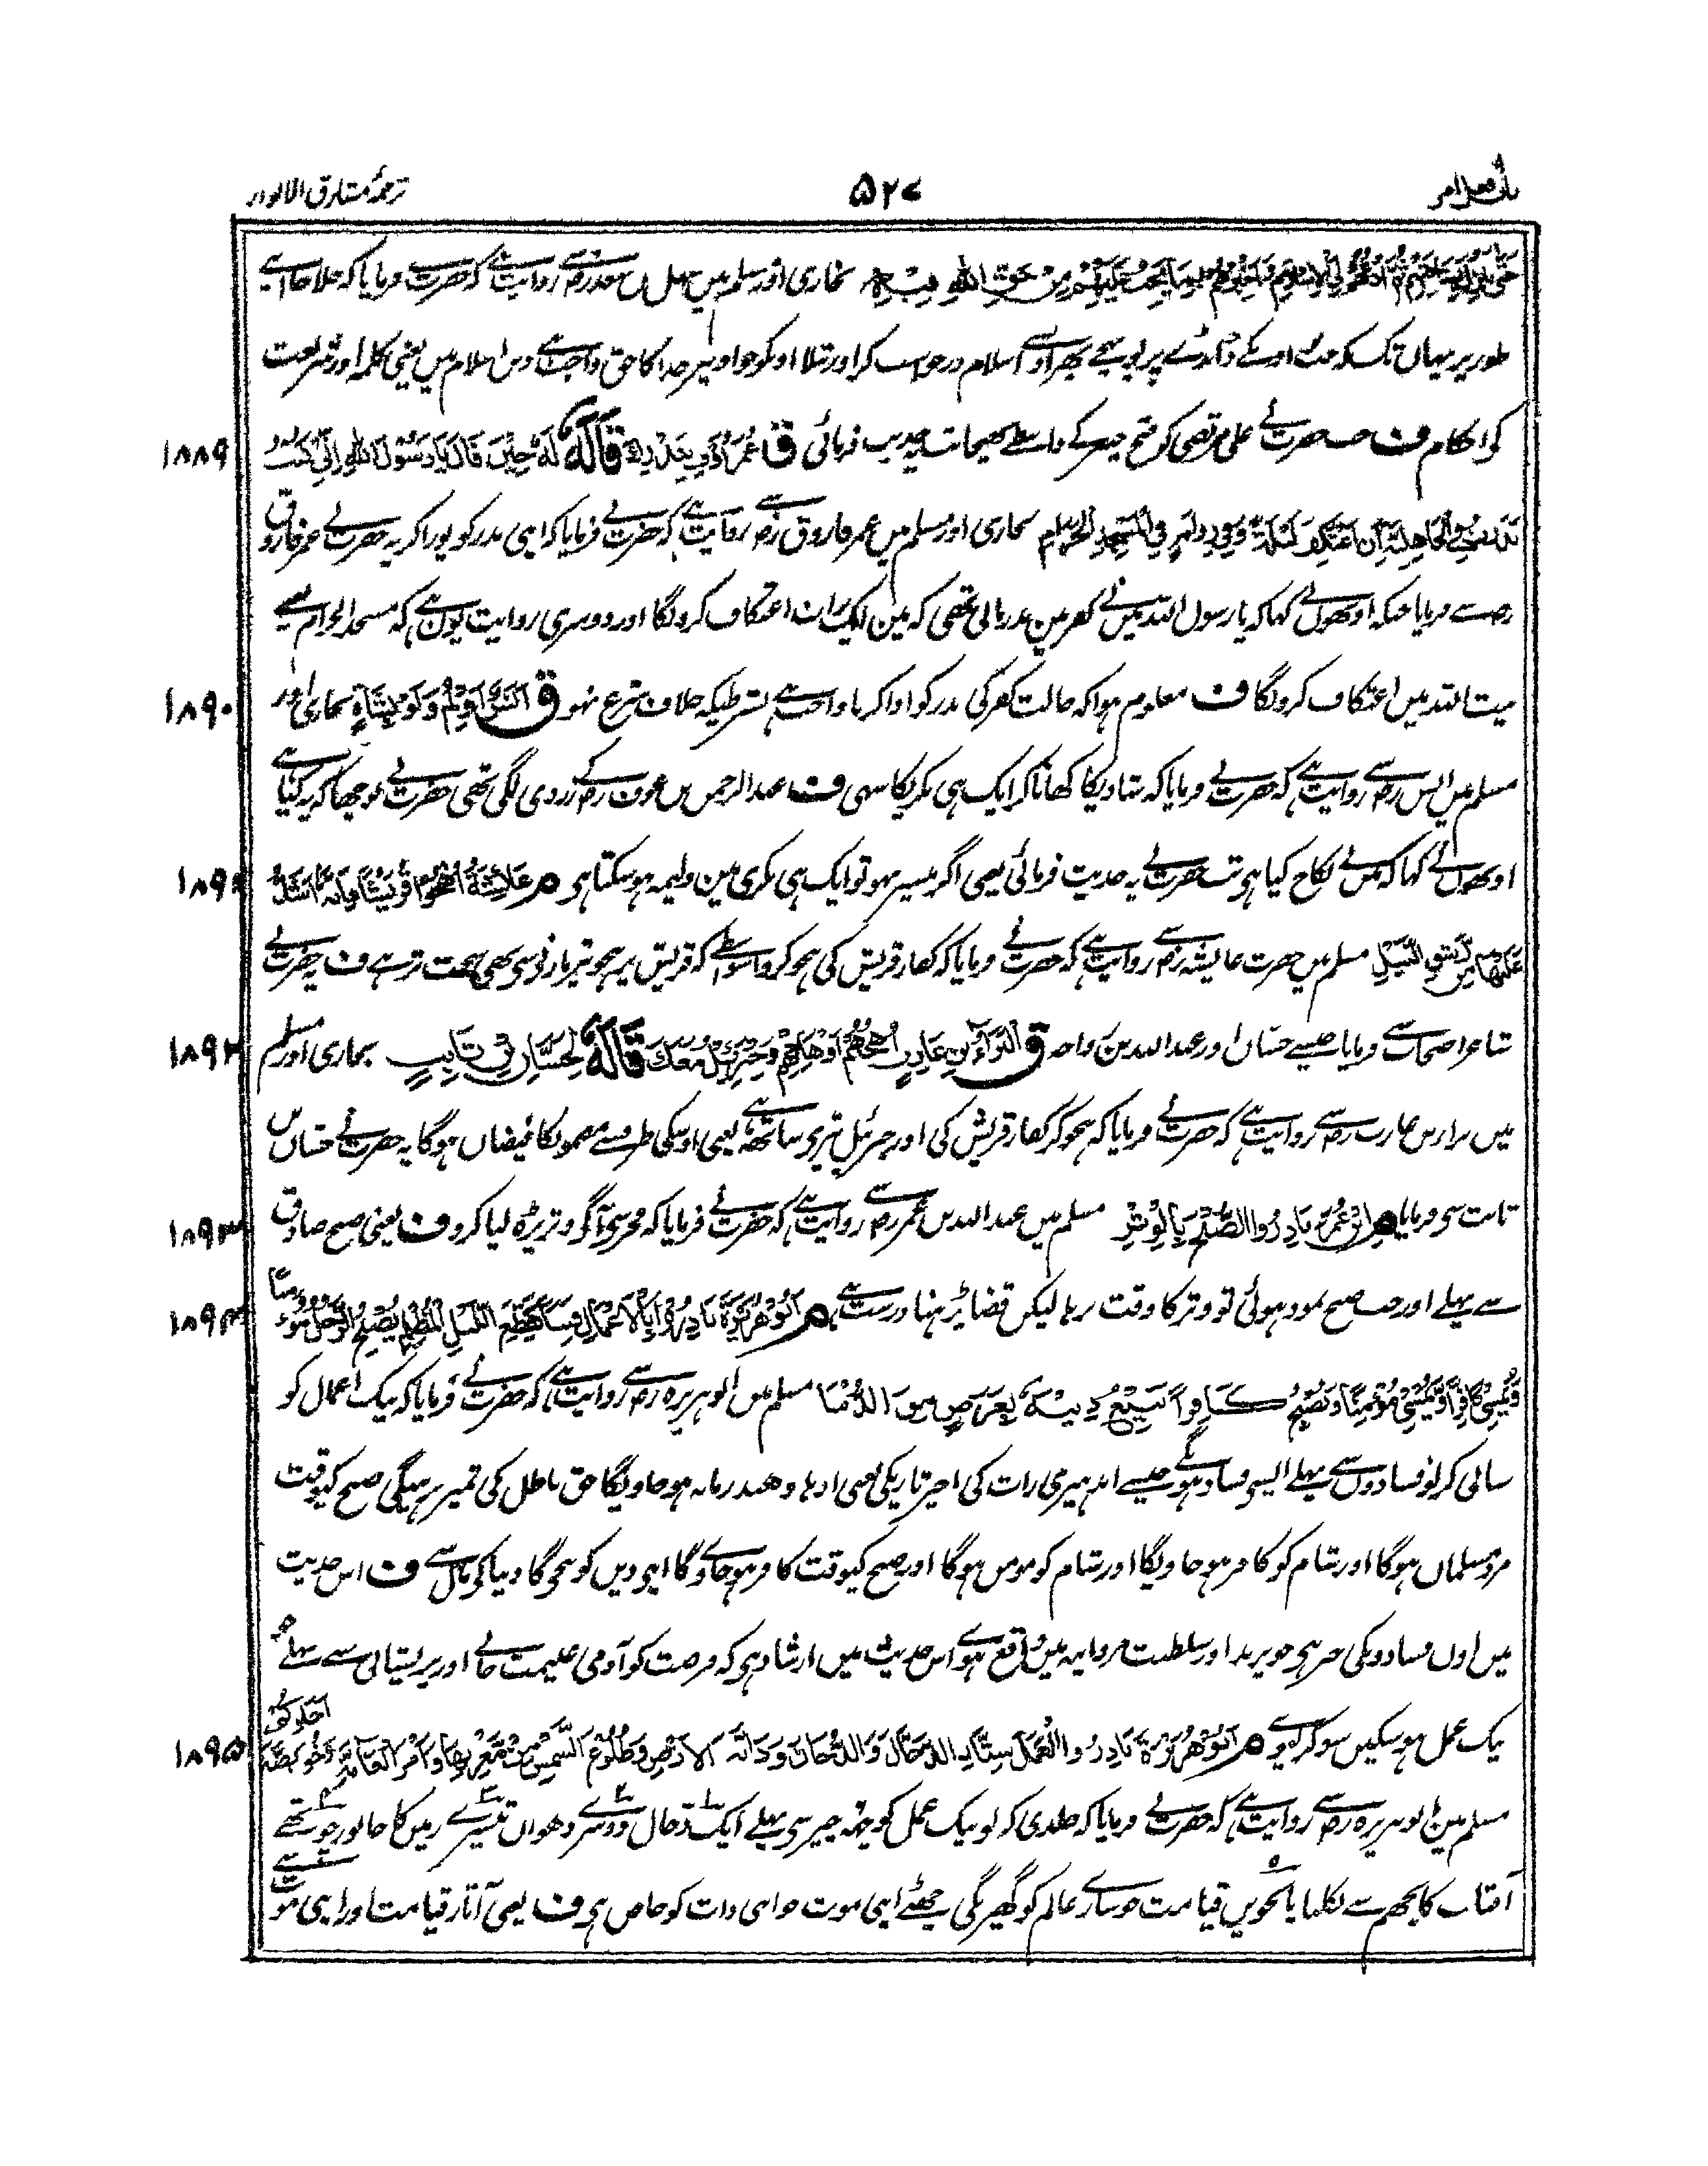 باب فعل امر ۵۲۷ ترجمۂ مشارق الانوار
حَتّٰى تَنْزِلَ بِسَاحَتِهِمْ ثُمَّ ادْعُهُمْ اِلَى الْاِسْلَامِ وَاَخْبِرْهُمْ بِمَا يَجِبُ عَلَيْهِمْ مِنْ حَقِّ اللّٰهِ فِيْهِ بخاری اور مسلم میں سہل بن سعد رضسے روایت ہے کہ حضرت نے فرمایا کہ چلا جا اپنے
طور پر یہاں تک کہ جب اونکے پر پہنچے پھر اونسے اسلام درخواست کر اور بتلا اونکو جو اونپر خدا کا حق واجب ہے دین اسلام میں یعنی کلمہ اور شریعت
کے احکام ف جب حضرت نے علی مرتضی کو فتح خیبر کے واسطے بھیجا تب یہ حدیث فرمائی ق عُمَرُ اَوْفِ بِنَذْرِكَ قَالَهٗ لَهٗ حِيْنَ قَالَ يَا رَسُوْلَ اللّٰهِ اِنِّيْ كُنْتُ ۱۸۸۹
نَذَرْتُ فِي الْجَاهِلِيَّةِ اَنْ اَعْتَكِفَ لَيْلَةً وَفِيْ رِوَايَةٍ فِي الْمَسْجِدِ الْحَرَامِ بخاری اور مسلم میں عمر فاروق رضسے روایت ہے کہ حضرت نے فرمایا کہ اپنی نذر کو پورا کر یہ حضرت نے عمر فاروق
رضسے فرمایا جبکہ اونھوں نے کہا کہ یا رسول اللہ میں نے کفر میں نذر مانی تھی کہ میں ایک رات اعتکاف کرونگا اور دوسری روایت یوں ہے کہ مسجد الحرام یعنے
بیت اللہ میں اعتکاف کرونگا ف معلوم ہوا کہ حالت کفر کی نذر کو ادا کرنا واجب ہے بشرطیکہ خلاف شرع نہو ق اَنَسٌ اَوْلِمْ وَلَوْ بِشَاةٍ بخاری اور ۱۸۹۰
مسلم میں انس رضسے روایت ہے کہ حضرت نے فرمایا کہ شادیکا کھانا کر ایک ہی بکریکا سہی ف عبد الرحمن بن عوف رضکے زردی لگی تھی حضرت نے پوچھا کہ یہ کیا ہے
اونھوں نے کہا کہ میں نے نکاح کیا ہی تب حضرت نے یہ حدیث فرمائی یعنی اگر میسر ہو تو ایک ہی بکری میں ولیمہ ہو سکتا ہی م عَائِشَةُ اُهْجُوْا قُرَيْشًا فَاِنَّهٗ اَشَدُّ ۱۸۹۱
عَلَيْهَا مِنْ رَشْقِ النَّبْلِ مسلم میں حضرت عایشہ رضسے روایت ہے کہ حضرت نے فرمایا کہ کفار قریش کی ہجو کرو اسواسطے کہ قریش پر ہجو تیر بارنے سی بھی سخت تر ہے ف یہ حضرت نے
شاعر اصحاب سے فرمایا جیسے حسّان اور عبد اللہ بن رواحہ ق اَلْبَرَاءُ بْنُ عَازِبٍ اُهْجُهُمْ اَوْ هَاجِهِمْ وَجِبْرَئِيْلُ مَعَكَ قَالَهٗ لِحَسَّانَ بْنِ ثَابِتٍ بخاری اور مسلم ۱۸۹۲
میں براء بن عازب رضسے روایت ہے کہ حضرت نے فرمایا کہ ہجو کر کفار قریش کی اور جبرئیل تیری ساتھ ہے یعنی اوسکی طرف سے مضمونکا فیضان ہوگا یہ حضرت نے حسّان بن
ثابت سی فرمایا م اِبْنُ عُمَرَ بَادِرُوا الصُّبْحَ بِالْوِتْرِ مسلم میں عبد اللہ بن عمر رضسے روایت ہے کہ حضرت نے فرمایا کہ فجر سی آگو وتر پڑھ لیا کرو ف یعنی صبح صادق ۱۸۹۳
سے پہلے اور جب صبح نمود ہوئی تو وتر کا وقت نرہا لیکن قضا پڑہنا درست ہے م اَبُوْ هُرَيْرَةَ بَادِرُوْا بِالْاَعْمَالِ فِتَنًا كَقِطَعِ اللَّيْلِ الْمُظْلِمِ يُصْبِحُ الرَّجُلُ مُؤْمِنًا ۱۸۹۴
وَيُمْسِيْ كَافِرًا وَيُمْسِيْ مُؤْمِنًا وَيُصْبِحُ كَافِرًا يَبِيْعُ دِيْنَهٗ بِعَرَضٍ مِنَ الدُّنْيَا مسلم میں ابو ہریرہ رضسے روایت ہے کہ حضرت نے فرمایا کہ نیک اعمال کو
شتابی کر لو فسادوں سے پہلے ایسے فساد ہونگے جیسے اندہیری رات کی اخیر تاریکی یعنی اندہا دھند زمانہ ہو جاویگا حق باطل کی تمیز نرہیگی صبح کیوقت
مرد مسلمان ہوگا اور شام کو کافر ہو جاویگا اور شام کو مومن ہوگا اور صبح کیوقت کافر ہو جاویگا اپنی دین کو بیچیگا دنیا کی مال سے ف اس حدیث
میں اون فسادونکی خبر ہی جو یزید اور سلطنت مروانیہ میں واقع ہوے اس حدیث میں ارشاد ہی کہ فرصت کو آدمی غنیمت جانے اور پریشانی سے پہلے جو
نیک عمل ہو سکیں سو کر لیوے م اَبُوْ هُرَيْرَةَ بَادِرُوا الْعَمَلَ سِتًّا اَلدَّجَّالَ وَالدُّخَانَ وَدَابَّةَ الْاَرْضِ وَطُلُوْعَ الشَّمْسِ مِنْ مَغْرِبِهَا وَاَمْرَ الْعَامَّةِ وَخُوَيْصَّةَ اَحَدِكُمْ ۱۸۹۵
مسلم میں ابو ہریرہ رضسے روایت ہے کہ حضرت نے فرمایا کہ جلدی کر لو نیک عمل کو چھہ چیز سی پہلے ایک دجال دوسرے دھواں تیسرے زمین کا جانور چوتھے
آفتاب کا پچھم سے نکلنا پانچویں قیامت جو سارے عالم کو گھیریگی چھٹے اپنی موت جو اپنی ذات کو خاص ہی ف یعنی آثار قیامت اور اپنی موت سے